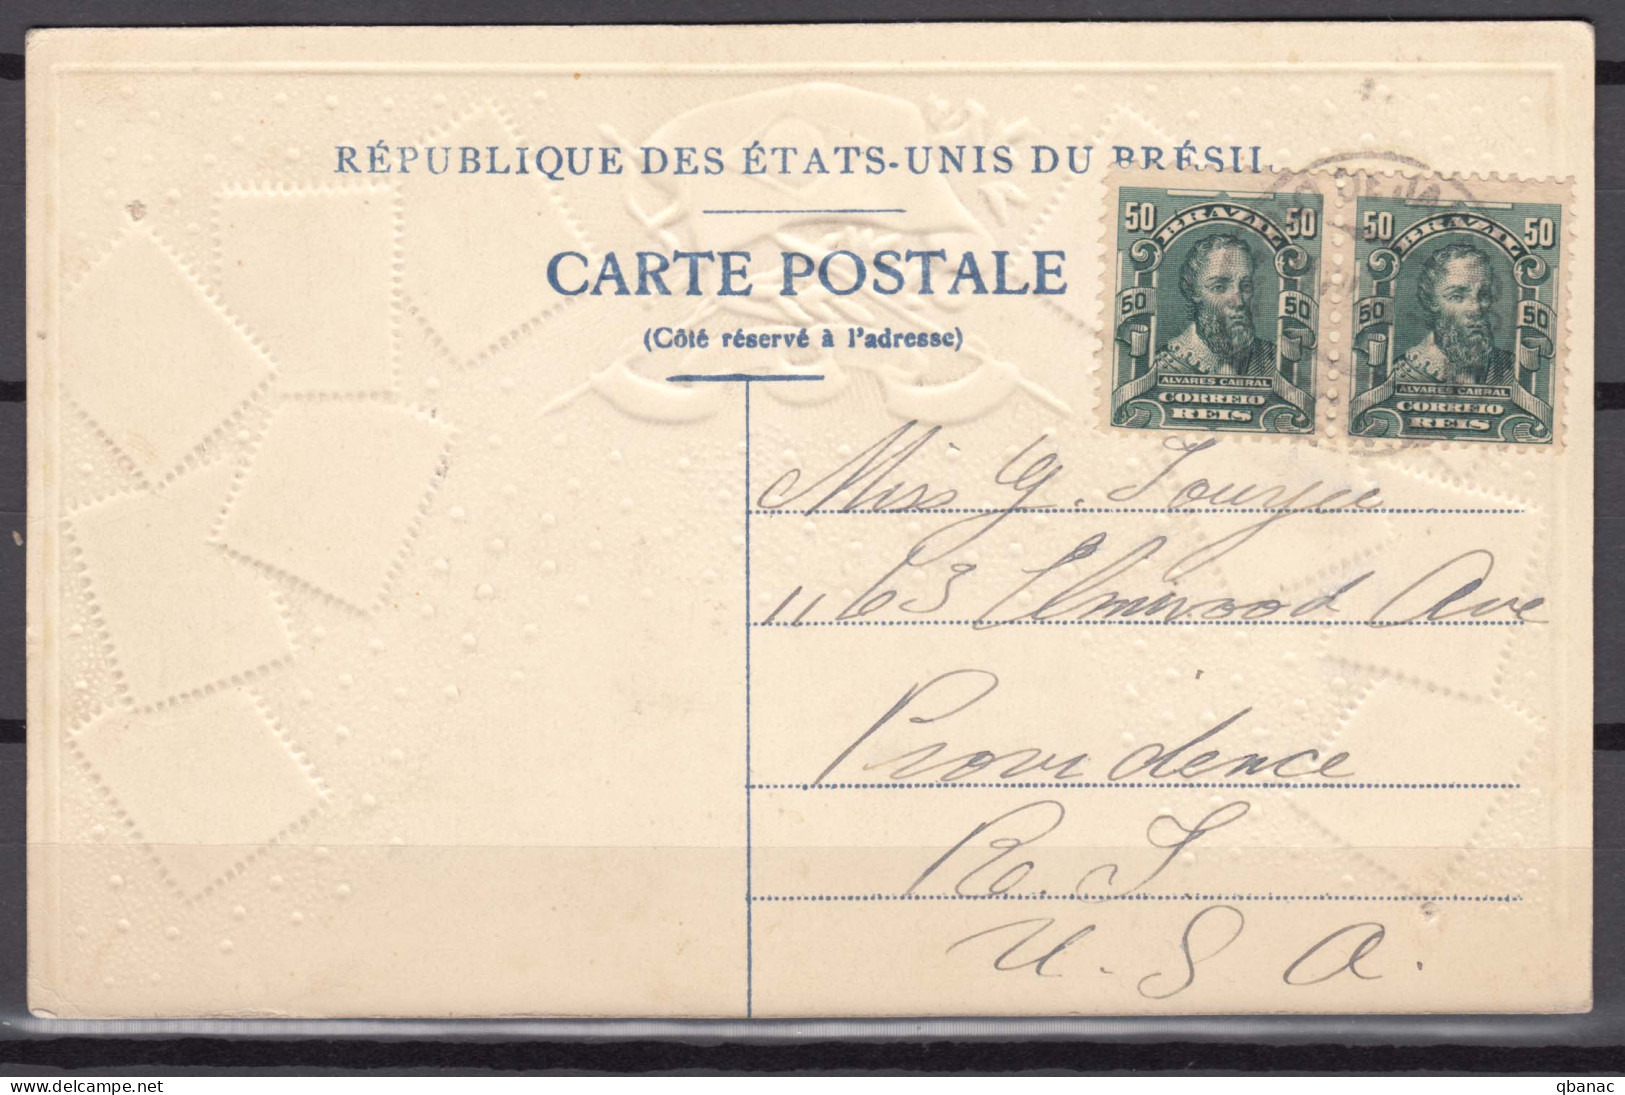 RÉPUBLIQUE DES ÉTATS-UNIS DU BRÉSIL
CARTE POSTALE
(Côté réservé à l'adresse)
50 BRAZIL 50
50 50
ALVARES CABRAL
CORREIO
REIS
50 BRAZIL 50
50 50
ALVARES CABRAL
CORREIO
REIS
Miss G.
1163 Elmwood Ave
Providence
R. I.
U. S. A.
www.delcampe.net
qbanac